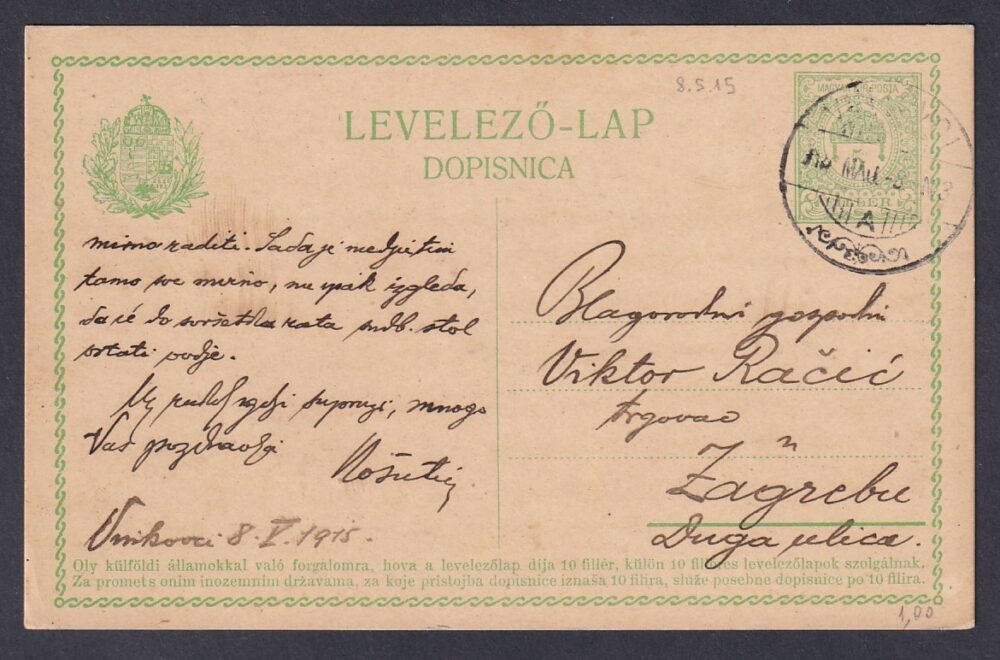 8.5.15
MAGYAR KIR. POSTA
LEVELEZŐ-LAP
DOPISNICA
5
FILLÉR
915 MÁJ. -8
A
mirno raditi. Sada je medjutim
tamo sve mirno, no ipak izgleda,
da će do svršetka rata
ostati ovdje.
supruzi, mnogo
Vas pozdravlja
Košutić
Vinkovci 8. V. 1915.
Blagorodni gospodin
Viktor Račić
trgovac
u
Zagrebu
Duga ulica.
Oly külföldi államokkal való forgalomra, hova a levelezőlap dija 10 fillér, külön 10 filléres levelezőlapok szolgálnak.
Za promets onim inozemnim državama, za koje pristojba dopisnice iznaša 10 filira, služe posebne dopisnice po 10 filira.
1,00